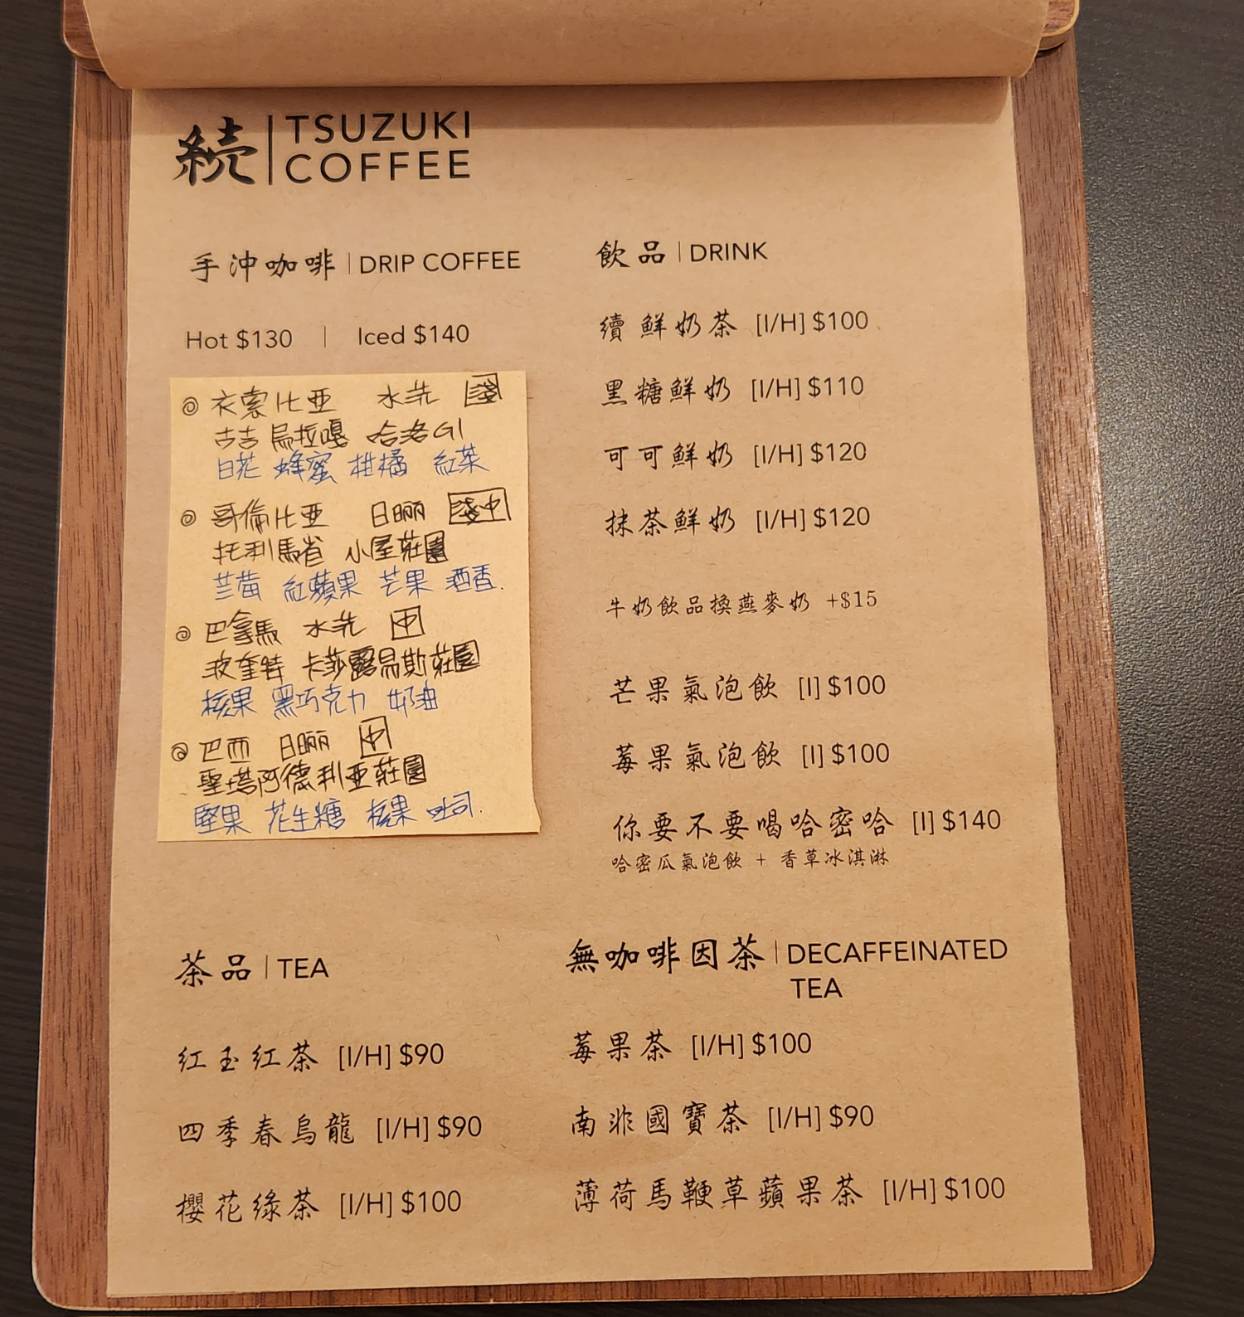 続 | TSUZUKI COFFEE
手沖咖啡 | DRIP COFFEE
Hot $130 | Iced $140
◎ 衣索比亞 水洗 淺
古吉 烏拉嘎 哈洛 G1
白花 蜂蜜 柑橘 紅茶
◎ 哥倫比亞 日晒 淺中
托利馬省 小屋莊園
红蘋果 芒果 酒香.
◎ 巴拿馬 水洗 中
波奎特 卡莎露易斯莊園
核果 黑巧克力 奶油
◎ 巴西 日晒 中
聖塔阿德利亞莊園
堅果 花生糖 核果 吐司.
飲品 | DRINK
續鮮奶茶 [I/H] $100
黑糖鮮奶 [I/H] $110
可可鮮奶 [I/H] $120
抹茶鮮奶 [I/H] $120
牛奶飲品換燕麥奶 +$15
芒果氣泡飲 [I] $100
莓果氣泡飲 [I] $100
你要不要喝哈密哈 [I] $140
哈密瓜氣泡飲 + 香草冰淇淋
茶品 | TEA
紅玉紅茶 [I/H] $90
四季春烏龍 [I/H] $90
櫻花綠茶 [I/H] $100
無咖啡因茶 | DECAFFEINATED
TEA
莓果茶 [I/H] $100
南非國寶茶 [I/H] $90
薄荷馬鞭草蘋果茶 [I/H] $100